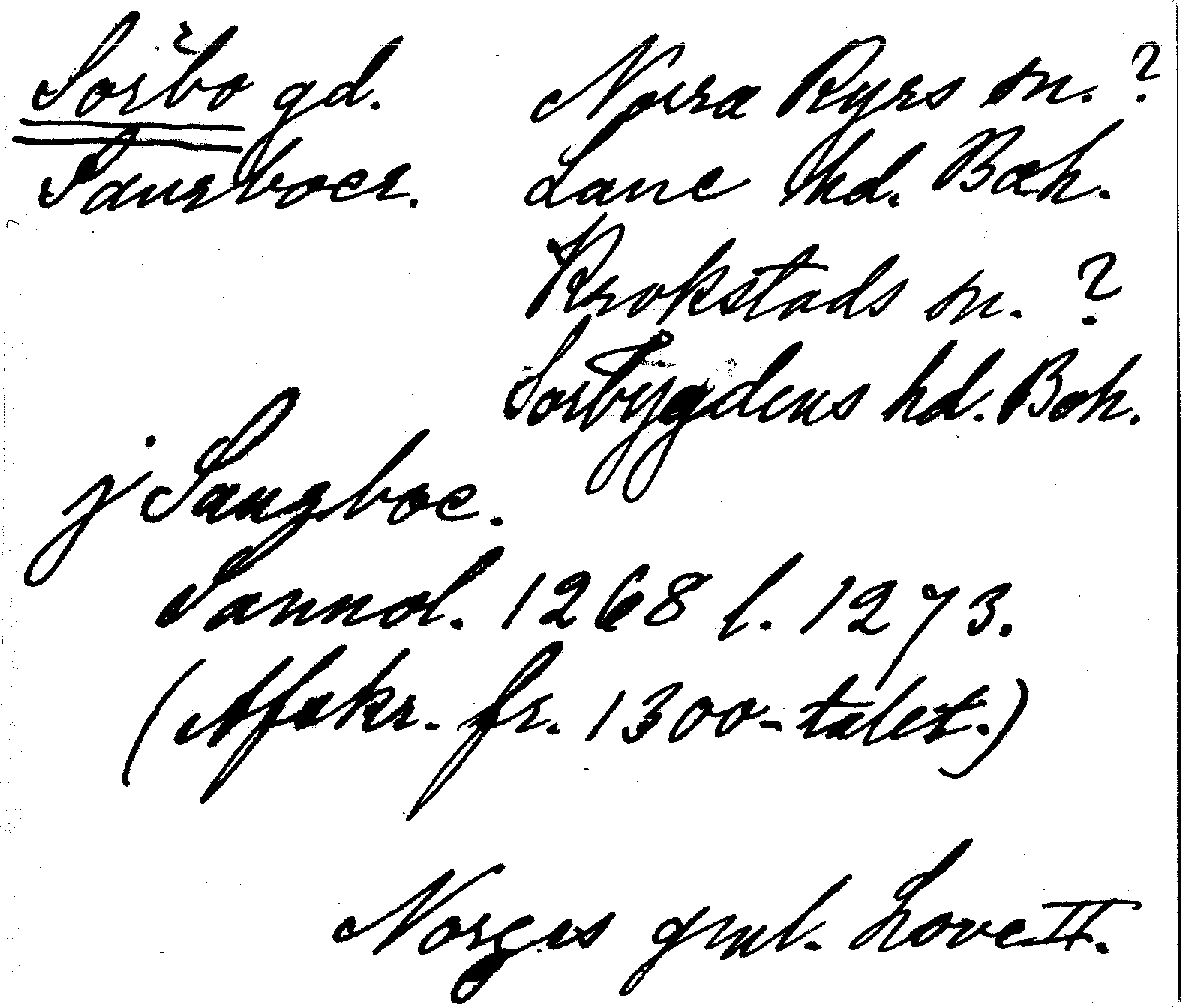 Sörbo gd. Norra Ryrs sn. ?
Saurboer. Lane hd. Boh.
Krokstads sn. ?
Sörbygdens hd. Boh.
j Saugboe.
Sannol. 1268 l. 1273.
(Afskr. fr. 1300-talet.)
Norges gml. Love II.